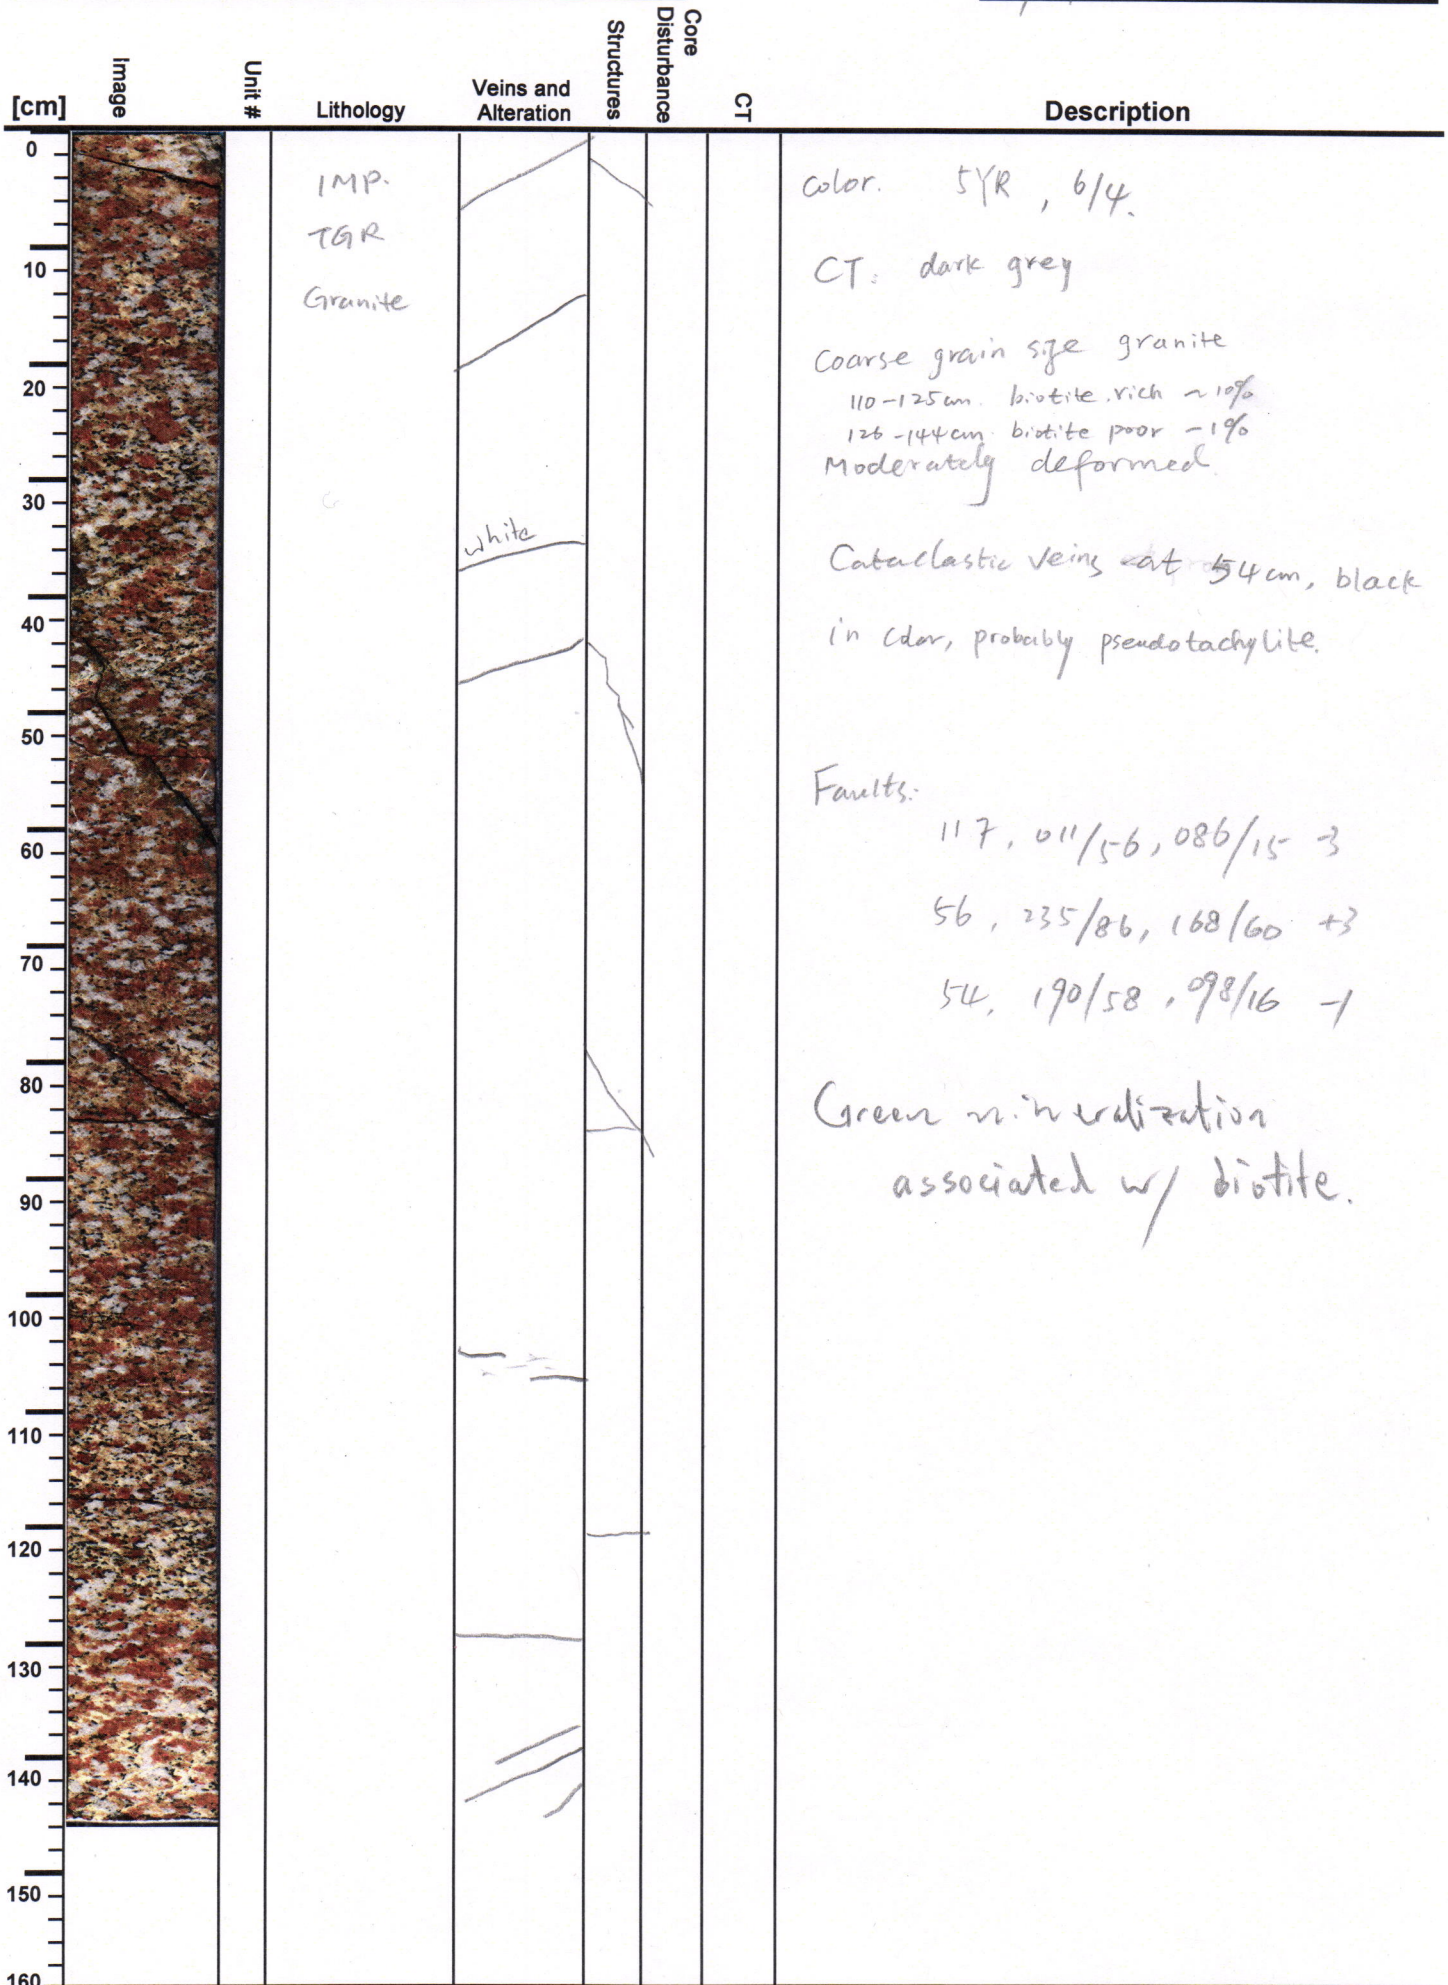 Image
Unit #
Structures
Core
Disturbance
CT
[cm]
Lithology
Veins and
Alteration
Description
0
10
20
30
40
50
60
70
80
90
100
110
120
130
140
150
160
IMP.
TGR
Granite
white
color. 5YR, 6/4.
CT: dark grey
Coarse grain size granite
110-125cm. biotite rich ~10%
126-144cm biotite poor ~1%
Moderately deformed.
Cataclastic veins at 54cm, black
in color, probably pseudotachylite.
Faults:
117, 011/56, 086/15 -3
56, 235/86, 168/60 +3
54, 190/58, 098/16 -1
Green mineralization
associated w/ biotite.